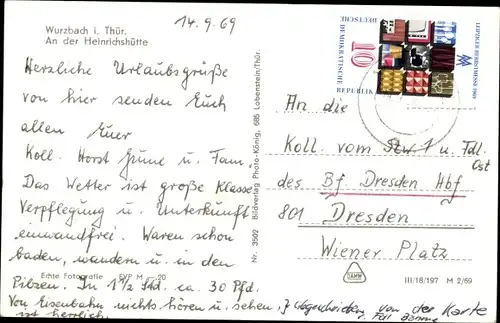 14.9.69
Wurzbach i. Thür.
An der Heinrichshütte
Herzliche Urlaubsgrüße
von hier senden Euch
allen Euer
Koll. Horst Grüne u. Fam.
Das Wetter ist große Klasse
Verpflegung u. Unterkunft
einwandfrei. Waren schon
baden, wandern u. in den
Pilzen. In 1½ Std. ca. 30 Pfd.
Von Eisenbahn nichts hören u. sehen,
ist herrlich.
Echte Fotografie EVP M -,20
Nr. 3502 Bildverlag Photo-König, 685 Lobenstein/Thür.
LEIPZIGER HERBSTMESSE 1969
DEUTSCHE
DEMOKRATISCHE
REPUBLIK
10
An die
Koll. vom Stw 1 u. Fdl.
Ost
des Bf Dresden Hbf
801 Dresden
Wiener Platz
III/18/197 M 2/69
von der Karte